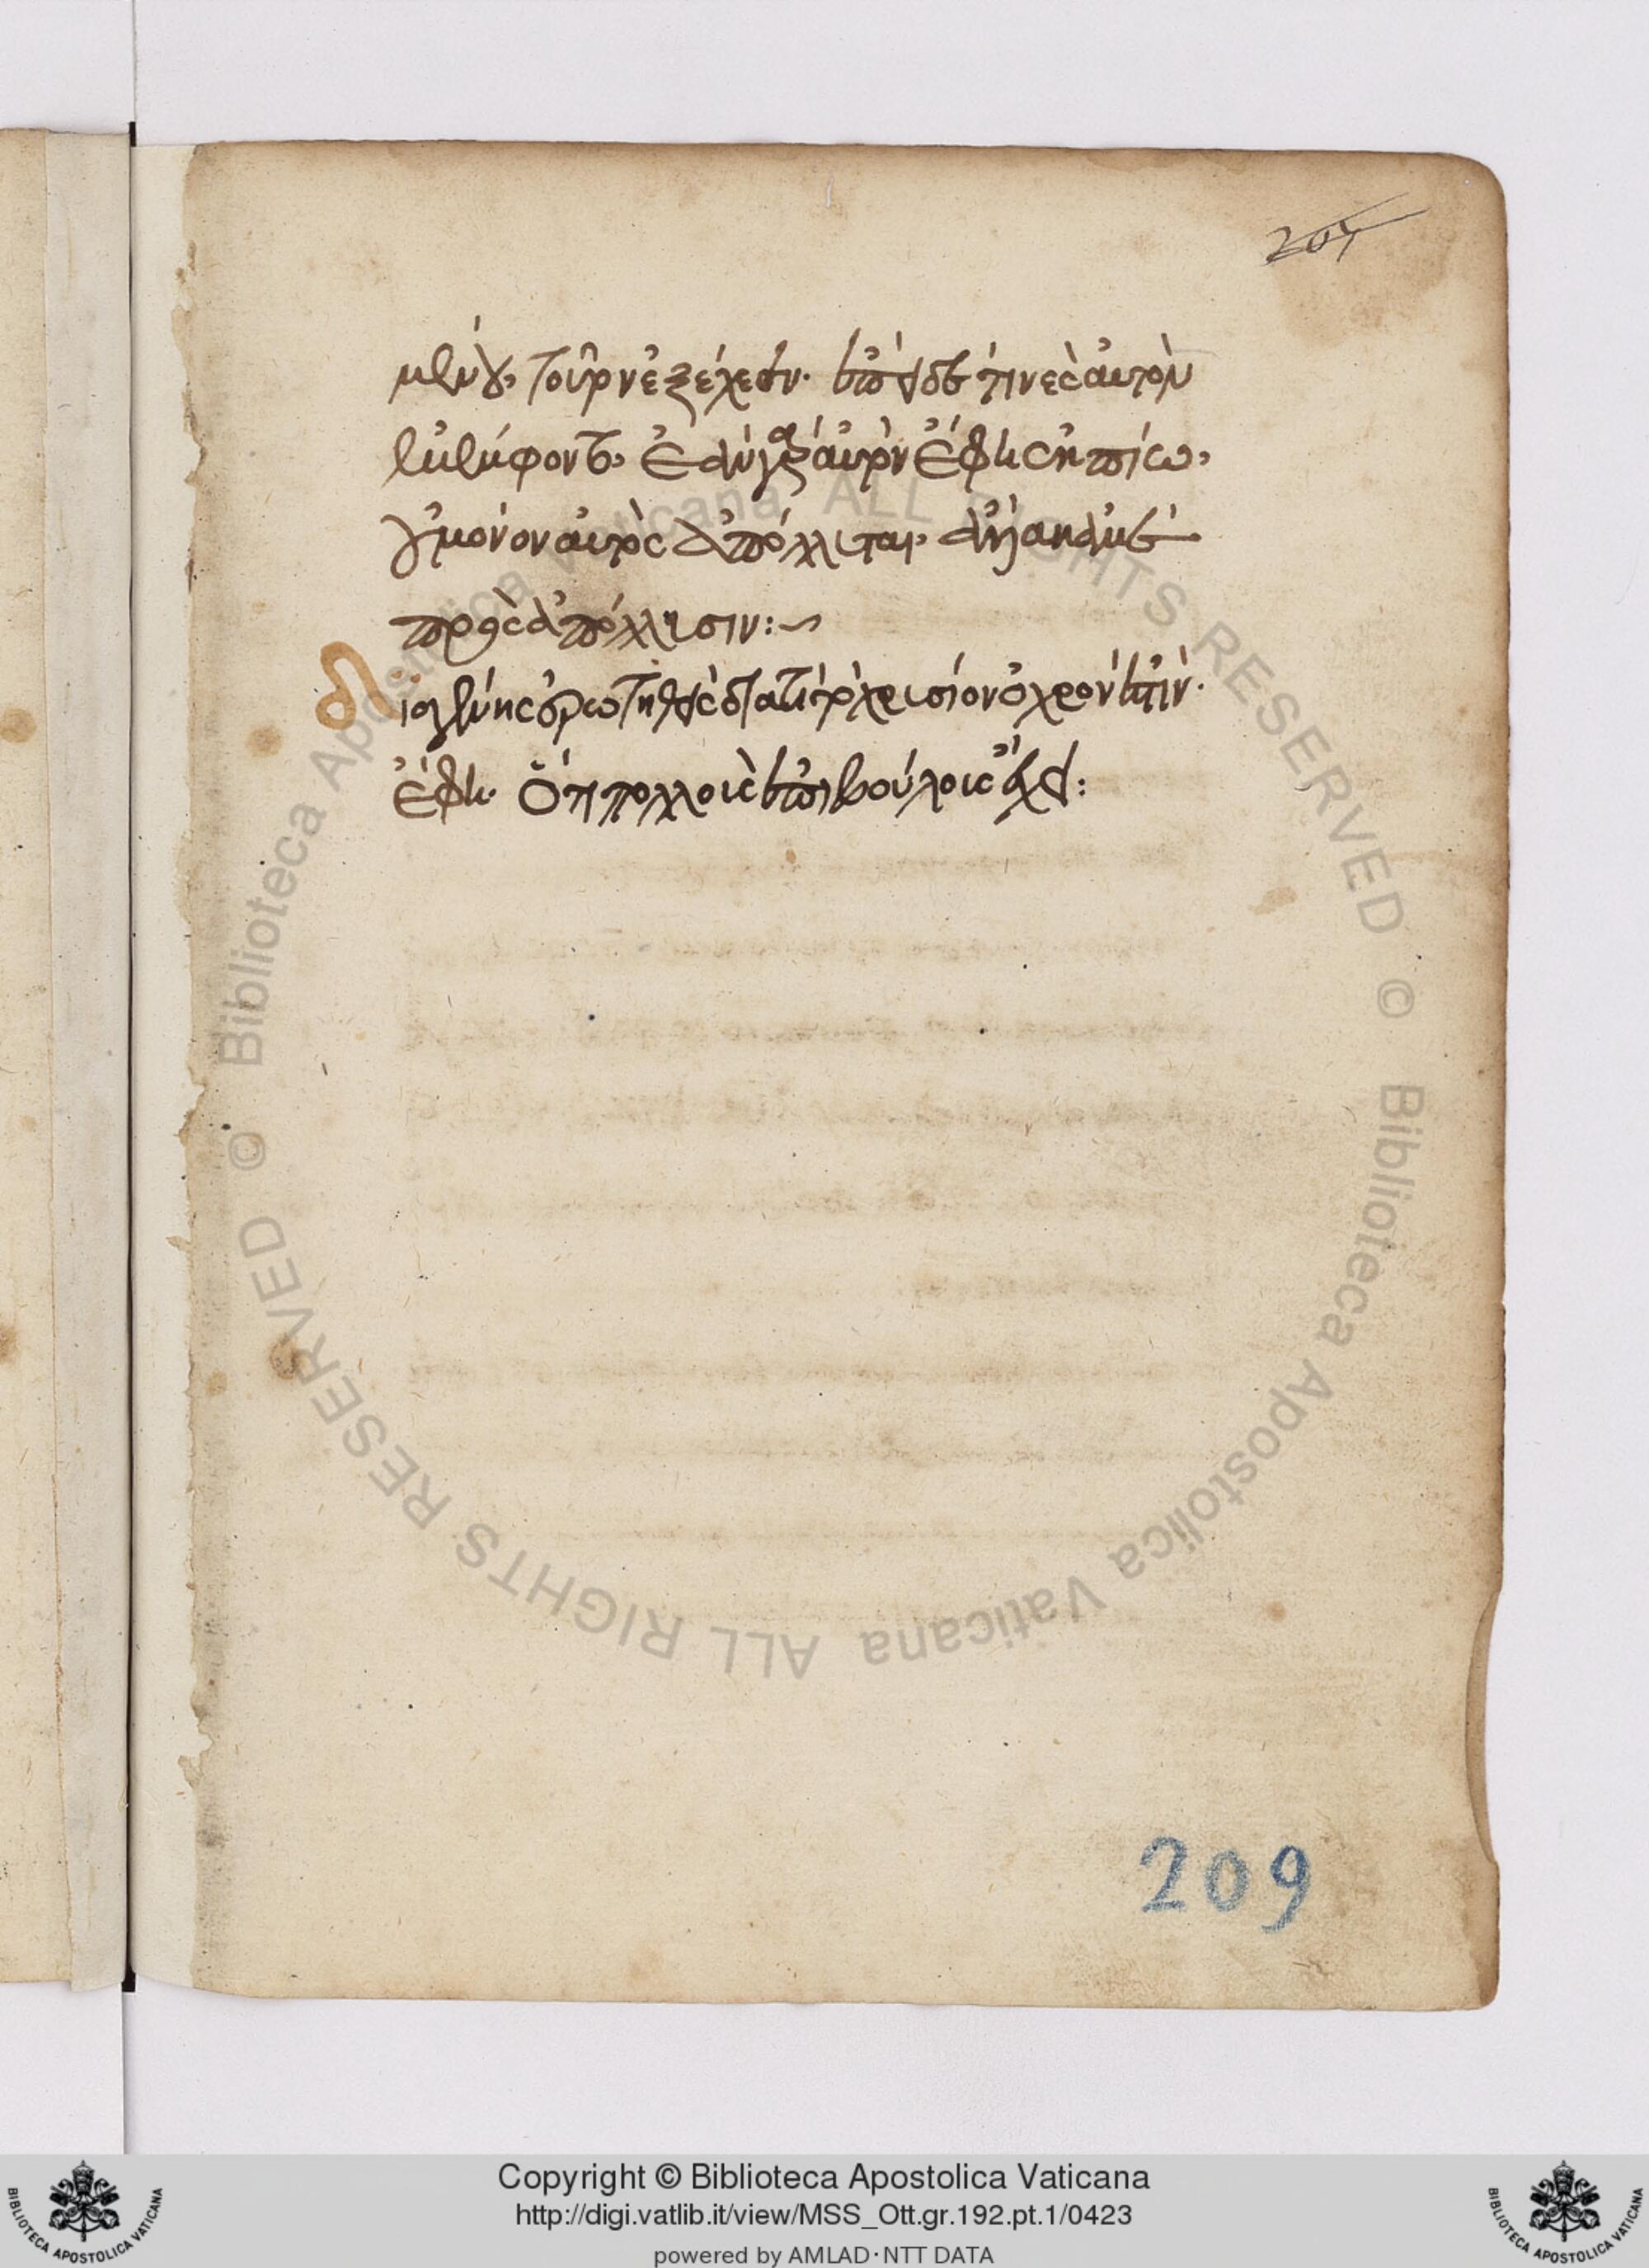 μένου, τοῦτον ἐξέχεεν. ἐπεὶ δέ τινες αὐτὸν
ἐμέμφοντο, ἐὰν γὰρ αὐτὸν ἔφησεν πίω,
οὐ μόνον αὐτὸς ἀπόλλυται, ἀλλὰ κἀμὲ
προσαπόλλυσιν:~
Διογένης ἐρωτηθεὶς διατί τὸ χρυσίον ὠχρόν ἐστιν.
ἔφη. ὅτι πολλοὺς ἐπιβούλους ἔχει:
209
Copyright © Biblioteca Apostolica Vaticana
http://digi.vatlib.it/view/MSS_Ott.gr.192.pt.1/0423
powered by AMLAD·NTT DATA
© Biblioteca Apostolica Vaticana ALL RIGHTS RESERVED © Biblioteca Apostolica Vaticana ALL RIGHTS RESERVED
BIBLIOTECA APOSTOLICA VATICANA
BIBLIOTECA APOSTOLICA VATICANA